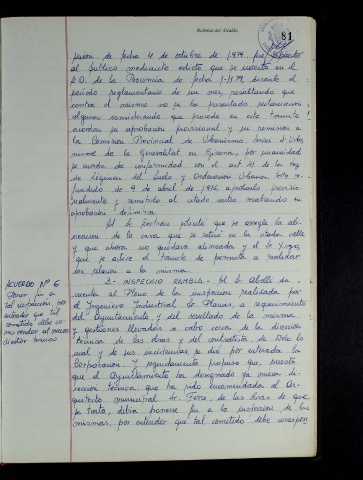 Rúbrica del Alcalde
81
sesión de fecha 4 de octubre de 1979, fue expuesto
al público mediante edicto que se insertó en el
B.O. de la Provincia de fecha 1-11-79 durante el
período reglamentario de un mes, resultando que
contra el mismo no se ha presentado reclamación
alguna, considerando que procede en este trámite
acordar su aprobación provisional y su remisión a
la Comisión Provincial de Urbanismo,
nismo de la Generalitat en Gerona, por unanimidad
se acordó de conformidad con el art. 41 de la Ley
de Régimen del Suelo y Ordenación Urbana, texto re-
fundido de 9 de abril de 1976 aprobarlo provisio
nalmente y remitirlo al citado entre recabando su
aprobación definitiva.
El Sr. Bertrán solicitó que se arregle la ali-
neación de la casa que se retiró en la citada calle
y que ahora no quedará alineada y el Sr.
que se active el trámite de permuta a realizar
con relación a la misma.
ACUERDO Nº 6
3.- INSPECCIÓ RAMBLA - El Sr. Abelli da
cuenta al Pleno de la inspección realizada por
el Ingeniero Industrial Sr. Planas, a requerimiento
del Ayuntamiento y del resultado de la misma
y gestiones llevadas a cabo cerca de la dirección
técnica de las obras y del contratista. De todo lo
cual y de sus incidencias se dió por enterada la
Corporación y seguidamente propuso que, puesto
que el Ayuntamiento ha designado ya nueva di-
rección técnica, que ha sido encomendada al Ar-
quitecto municipal Sr. Ferre, de las obras de que
se trata, debía ponerse fin a la inspección de las
mismas, por entender que tal cometido debe correspon
Poner fin a
tal inspección, por
entender que tal
cometido debe co
rresponder al nuevo
director técnico